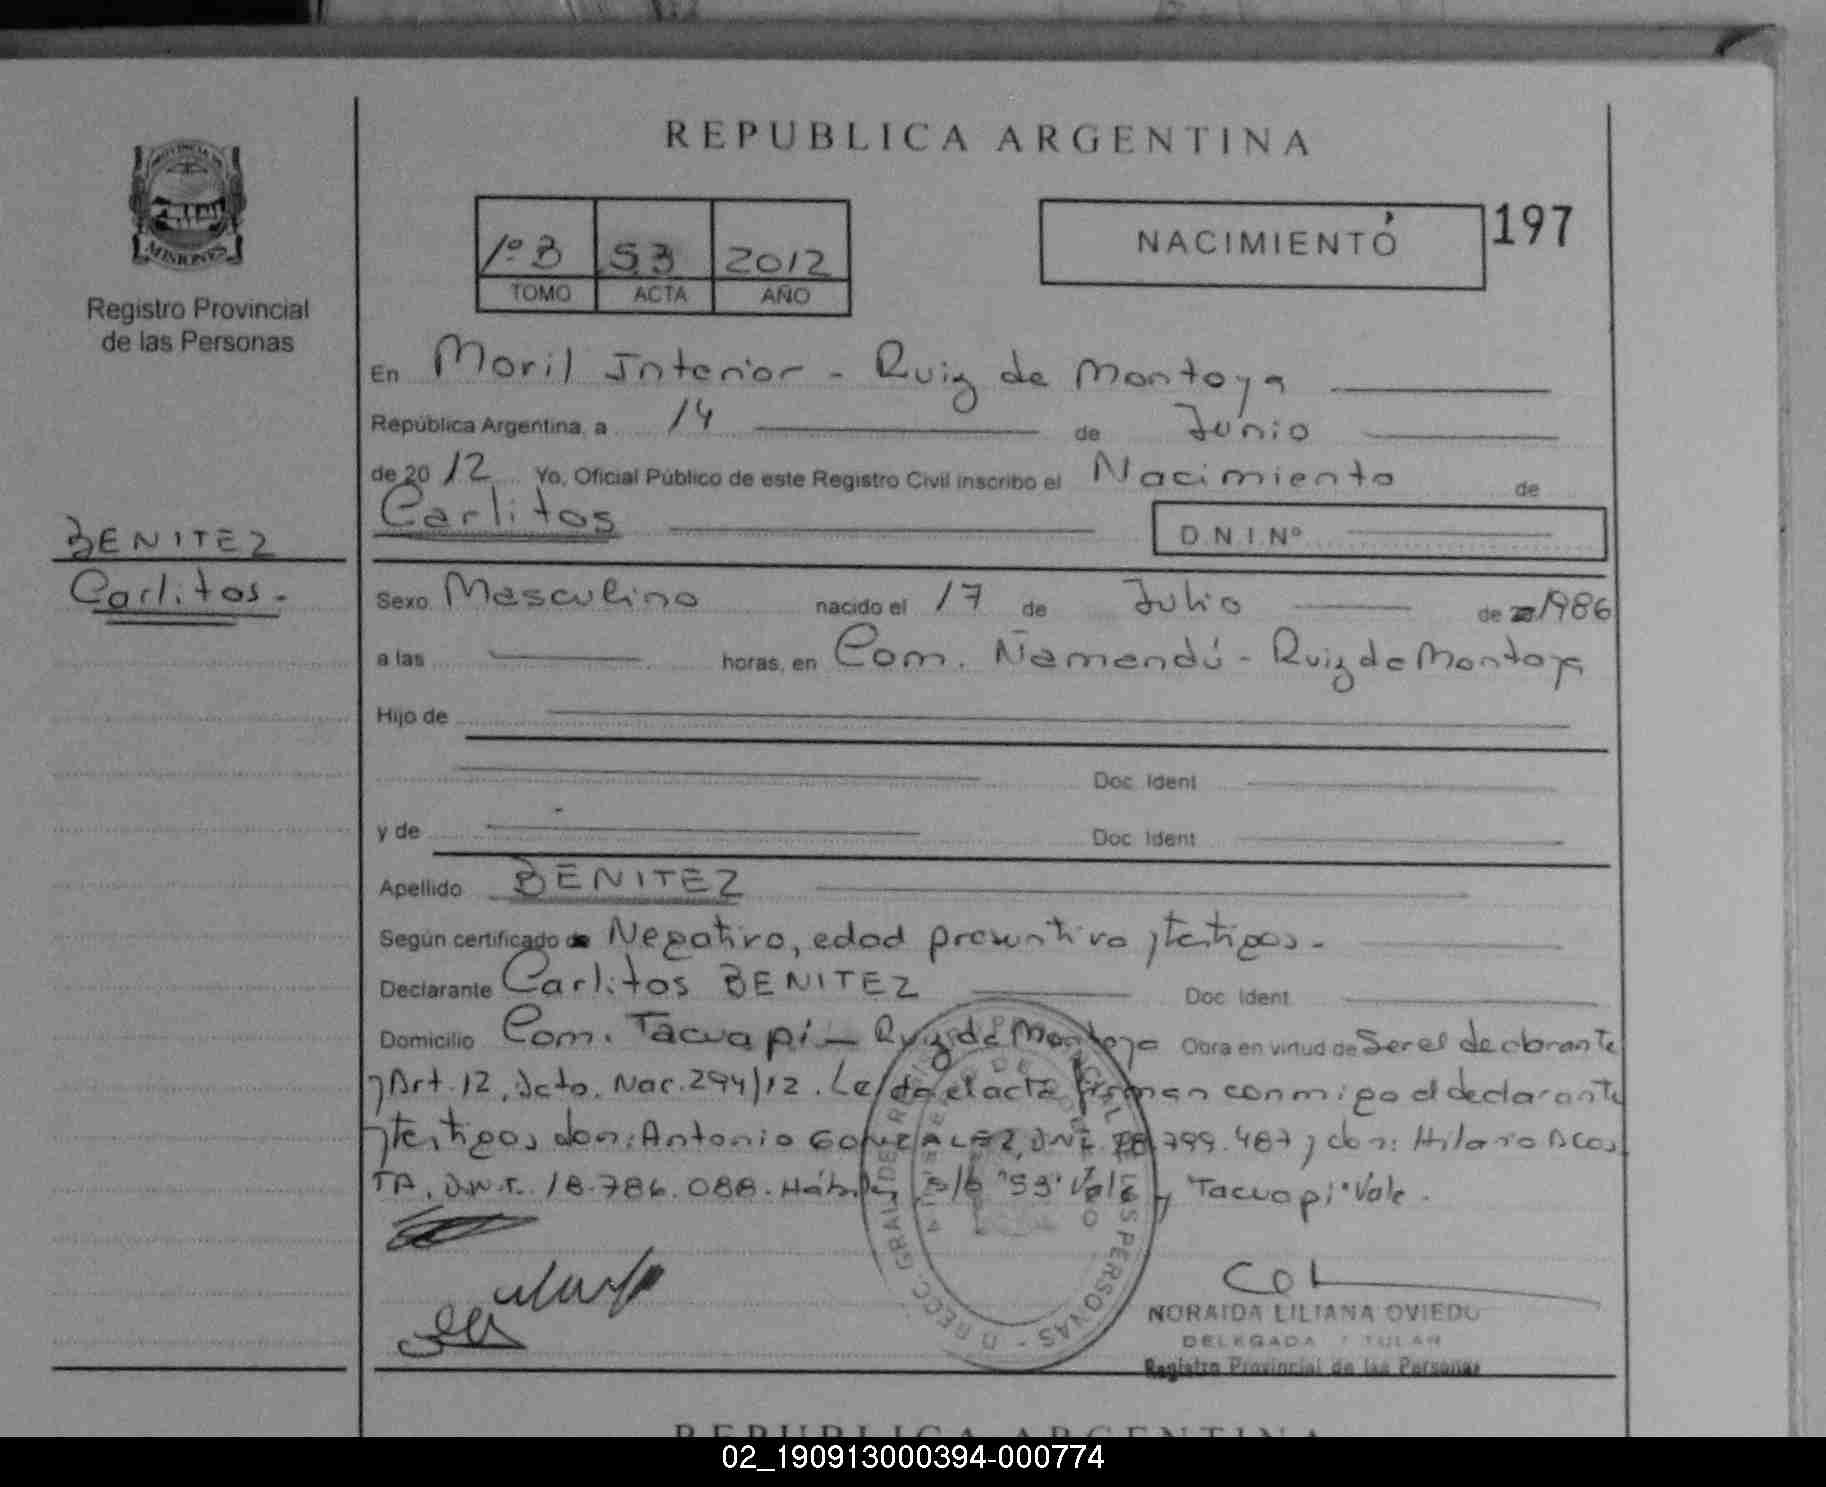 REPUBLICA ARGENTINA
PROVINCIA DE
MISIONES
Registro Provincial
de las Personas
1º B 53 2012
TOMO ACTA AÑO
NACIMIENTO
197
En Moril Interior - Ruiz de Montoya
República Argentina, a 14 de Junio
de 20 12 Yo, Oficial Público de este Registro Civil inscribo el Nacimiento de
Carlitos
D.N.I.Nº
BENITEZ
Carlitos.-
Sexo Masculino nacido el 17 de Julio de 1986
a las horas, en Com. Ñamandú - Ruiz de Montoya
Hijo de
Doc. Ident
y de Doc. Ident
Apellido BENITEZ
Según certificado de Negativo, edad presuntiva y testigos.-
Declarante Carlitos BENITEZ Doc. Ident
Domicilio Com. Tacuapí - Ruiz de Montoya Obra en virtud de Ser el declarante
y Art. 12, Dcto. Nac. 294/12. Leída el acta firman conmigo el declarante
y testigos don: Antonio GONZALEZ, DNI. 799.487 y don: Hilario ACOS
TA, D.N.I. 18.786.088. Hábiles, s/b "53" Vale y Tacuapí "Vale.
NORAIDA LILIANA OVIEDO
DELEGADA TITULAR
Registro Provincial de las Personas
REPUBLICA ARGENTINA
02_190913000394-000774